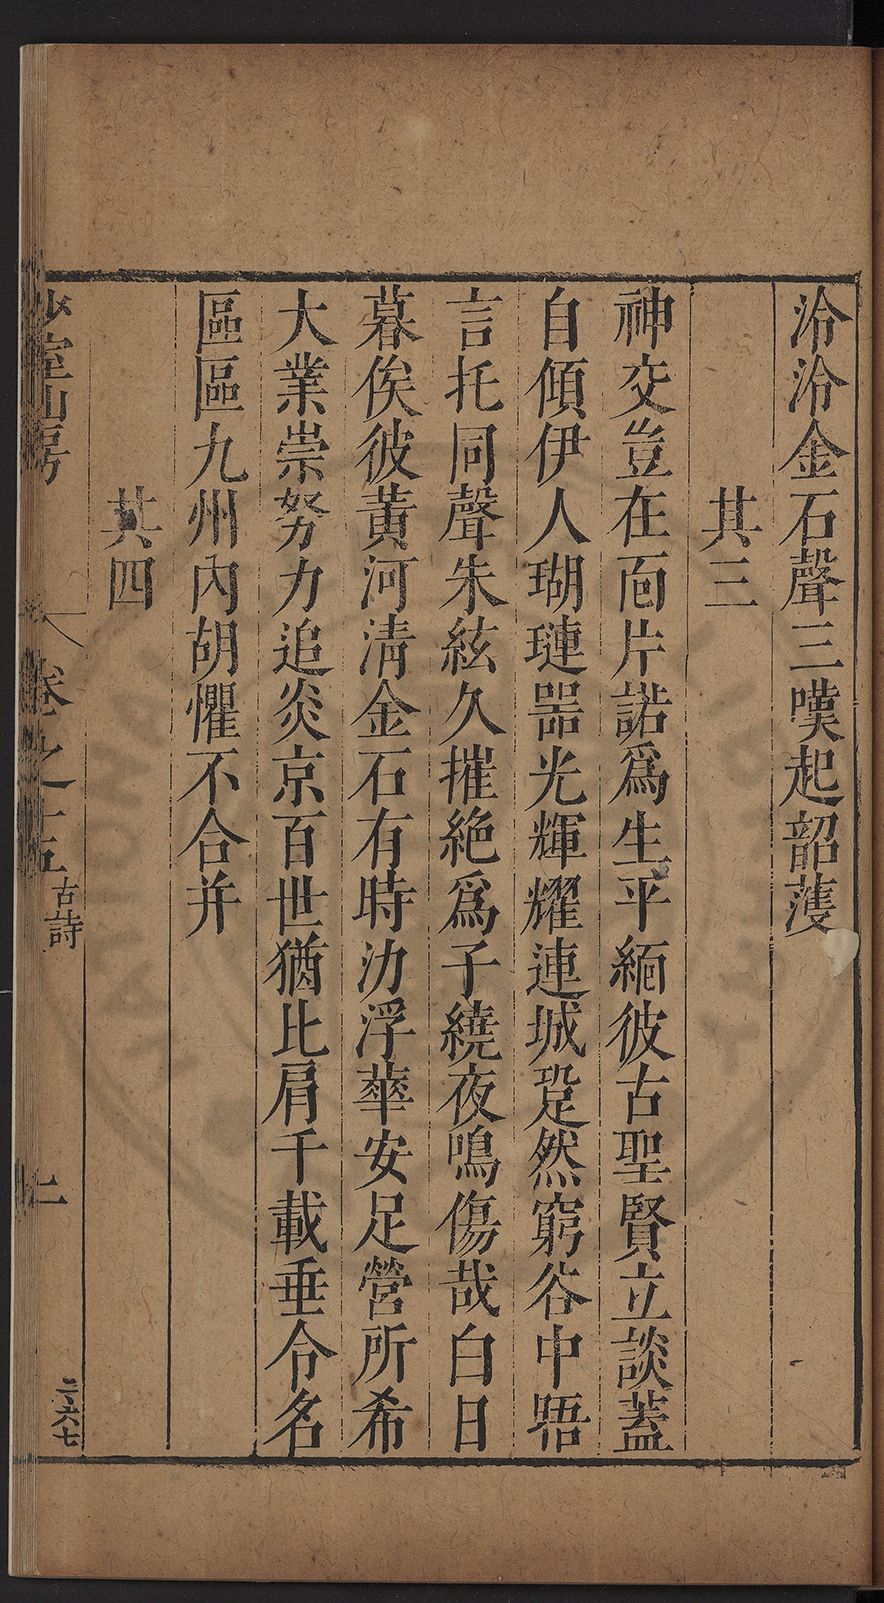 泠泠金石聲三嘆起韶濩
其三
神交豈在面片諾爲生平緬彼古聖賢立談蓋
自傾伊人瑚璉器光輝耀連城跫然窮谷中晤
言托同聲朱絃久摧絶爲子繞夜鳴傷哉白日
暮俟彼黃河清金石有時泐浮華安足營所希
大業崇努力追炎京百世猶比肩千載垂令名
區區九州內胡懼不合并
其四
少室山房
卷之十五 古詩
二
二六七